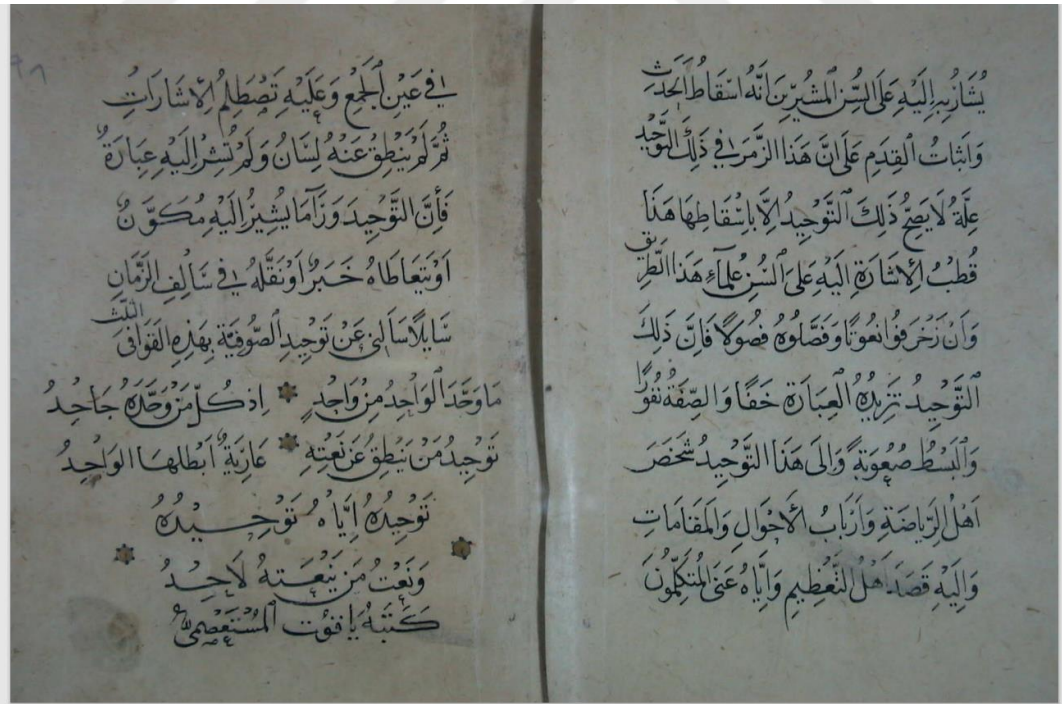 يُشَارُ بِهِ إِلَيْهِ عَلَى أَلْسُنِ الْمُشِيرِينَ أَنَّهُ إِسْقَاطُ الْحَدَثِ
وَإِثْبَاتُ الْقِدَمِ عَلَى أَنَّ هَذَا الرَّمْزَ فِي ذَلِكَ التَّوْحِيدِ
عِلَّةٌ لَا يَصِحُّ ذَلِكَ التَّوْحِيدُ إِلَّا بِإِسْقَاطِهَا هَذَا
قُطْبُ الْإِشَارَةِ إِلَيْهِ عَلَى أَلْسُنِ عُلَمَاءِ هَذَا الطَّرِيقِ
وَإِنْ زَخْرَفُوا نُعُوتًا وَفَصَّلُوهُ فُصُولًا فَإِنَّ ذَلِكَ
التَّوْحِيدَ تَزِيدُهُ الْعِبَارَةُ خَفًا وَالصِّفَةُ نُفُورًا
وَالْبَسْطُ صُعُوبَةً وَإِلَى هَذَا التَّوْحِيدِ شَخَصَ
أَهْلُ الرِّيَاضَةِ وَأَرْبَابُ الْأَحْوَالِ وَالْمَقَامَاتِ
وَإِلَيْهِ قَصَدَ أَهْلُ التَّعْظِيمِ وَإِيَّاهُ عَنَى الْمُتَكَلِّمُونَ
فِي عَيْنِ الْجَمْعِ وَعَلَيْهِ تَصْطَلِمُ الْإِشَارَاتِ
ثُمَّ لَمْ يَنْطِقْ عَنْهُ لِسَانٌ وَلَمْ تُشِرْ إِلَيْهِ عِبَارَةٌ
فَإِنَّ التَّوْحِيدَ وَرَا مَا يُشِيرُ إِلَيْهِ مُكَوَّنٌ
أَوْ يَتَعَاطَاهُ خَبَرٌ أَوْ نَقَلَهُ فِي سَالِفِ الزَّمَانِ
سَايِلًا سَأَلَنِي عَنْ تَوْحِيدِ الصُّوفِيَّةِ بِهَذِهِ الْقَوَافِي الثَّلَثِ
مَا وَحَّدَ الْوَاحِدُ مِنْ وَاحِدٍ إِذْ كُلُّ مَنْ وَحَّدَهُ جَاحِدُ
تَوْحِيدُ مَنْ يَنْطِقُ عَنْ نَعْتِهِ عَارِيَةٌ أَبْطَلَهَا الْوَاحِدُ
تَوْحِيدُهُ إِيَّاهُ تَوْحِيدُهُ
وَنَعْتُ مَنْ يَنْعَتُهُ لَاحِدُ
كَتَبَهُ يَاقُوت الْمُسْتَعْصِمِي